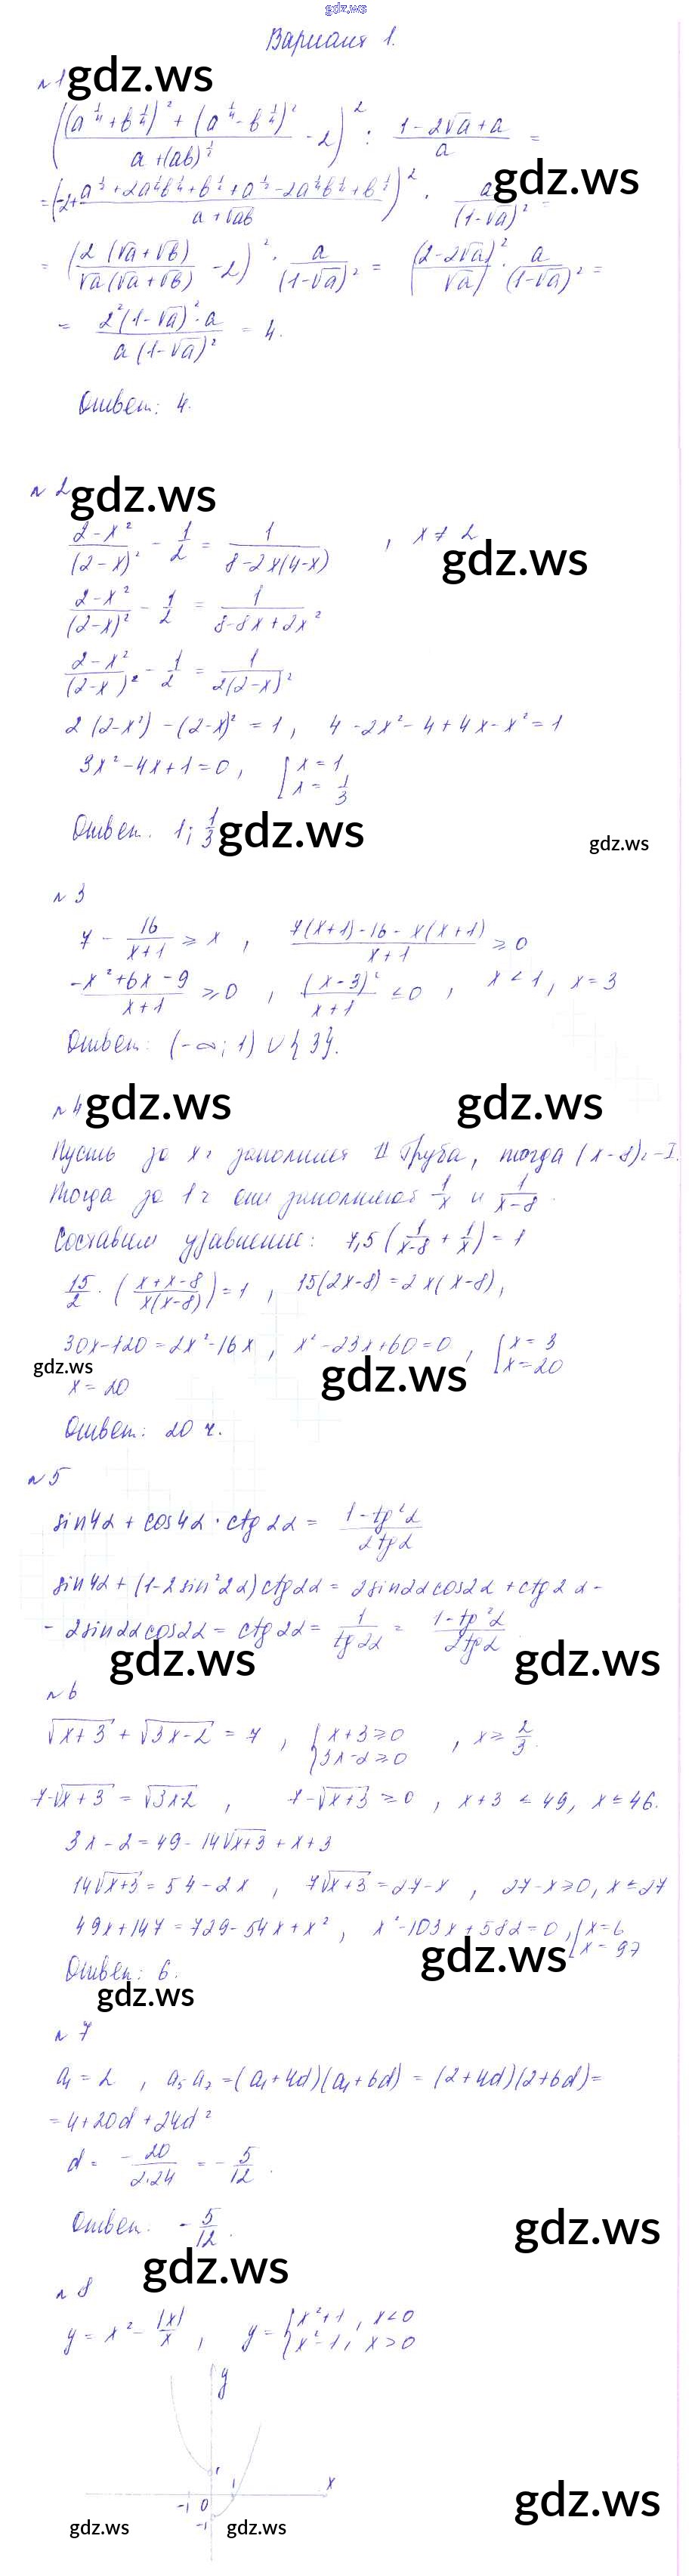 gdz.ws
Вариант 1.
n 1 gdz.ws
(((a^{1/4} + b^{1/4})^2 + (a^{1/4} - b^{1/4})^2)/(a + (ab)^{1/2}) - 2)^2 : (1 - 2√a + a)/a =
= (-2 + (a^{1/2} + 2a^{1/4}b^{1/4} + b^{1/2} + a^{1/2} - 2a^{1/4}b^{1/4} + b^{1/2})/(a + √ab))^2 · a/(1 - √a)^2 = gdz.ws
= (2(√a + √b)/(√a(√a + √b)) - 2)^2 · a/(1 - √a)^2 = ((2 - 2√a)/√a)^2 · a/(1 - √a)^2 =
= 2^2(1 - √a)^2 · a/(a(1 - √a)^2) = 4.
Ответ: 4.
n 2 gdz.ws
(2 - x^2)/(2 - x)^2 - 1/2 = 1/(8 - 2x(4 - x)) , x ≠ 2
gdz.ws
(2 - x^2)/(2 - x)^2 - 1/2 = 1/(8 - 8x + 2x^2)
(2 - x^2)/(2 - x)^2 - 1/2 = 1/(2(2 - x)^2)
2(2 - x^2) - (2 - x)^2 = 1, 4 - 2x^2 - 4 + 4x - x^2 = 1
3x^2 - 4x + 1 = 0, [x = 1
x = 1/3
Ответ. 1; 1/3 gdz.ws
gdz.ws
n 3
7 - 16/(x + 1) ≥ x , (7(x + 1) - 16 - x(x + 1))/(x + 1) ≥ 0
(-x^2 + 6x - 9)/(x + 1) ≥ 0 , (x - 3)^2/(x + 1) ≤ 0 , x < 1, x = 3
Ответ: (-∞; 1) ∪ {3}.
n 4 gdz.ws gdz.ws
Пусть за x ч заполняет II труба, тогда (x - 8) ч - I.
Тогда за 1 ч они заполняют 1/x и 1/(x - 8).
Составим уравнение: 7,5(1/(x - 8) + 1/x) = 1
15/2 · ((x + x - 8)/(x(x - 8))) = 1 , 15(2x - 8) = 2x(x - 8),
30x - 120 = 2x^2 - 16x , x^2 - 23x + 60 = 0 , [x = 3
x = 20
gdz.ws gdz.ws
x = 20
Ответ: 20 ч.
n 5
sin4α + cos4α · ctg2α = (1 - tg^2α)/(2tgα)
sin4α + (1 - 2sin^2 2α)ctg2α = 2sin2αcos2α + ctg2α -
- 2sin2αcos2α = ctg2α = 1/tg2α = (1 - tg^2α)/(2tgα).
gdz.ws gdz.ws
n 6
√(x + 3) + √(3x - 2) = 7 , {x + 3 ≥ 0
3x - 2 ≥ 0 , x ≥ 2/3.
7 - √(x + 3) = √(3x - 2) , 7 - √(x + 3) ≥ 0 , x + 3 ≤ 49, x ≤ 46.
3x - 2 = 49 - 14√(x + 3) + x + 3
14√(x + 3) = 54 - 2x , 7√(x + 3) = 27 - x , 27 - x ≥ 0, x ≤ 27
49x + 147 = 729 - 54x + x^2 , x^2 - 103x + 582 = 0, [x = 6
x = 97
gdz.ws
Ответ: 6.
gdz.ws
n 7
a₁ = 2 , a₅ a₇ = (a₁ + 4d)(a₁ + 6d) = (2 + 4d)(2 + 6d) =
= 4 + 20d + 24d^2
d = - 20/(2·24) = - 5/12.
Ответ. - 5/12.
gdz.ws
gdz.ws
n 8
y = x^2 - |x|/x , y = {x^2 + 1, x < 0
x^2 - 1, x > 0
y
1
1
x
-1 0
-1
gdz.ws
gdz.ws gdz.ws